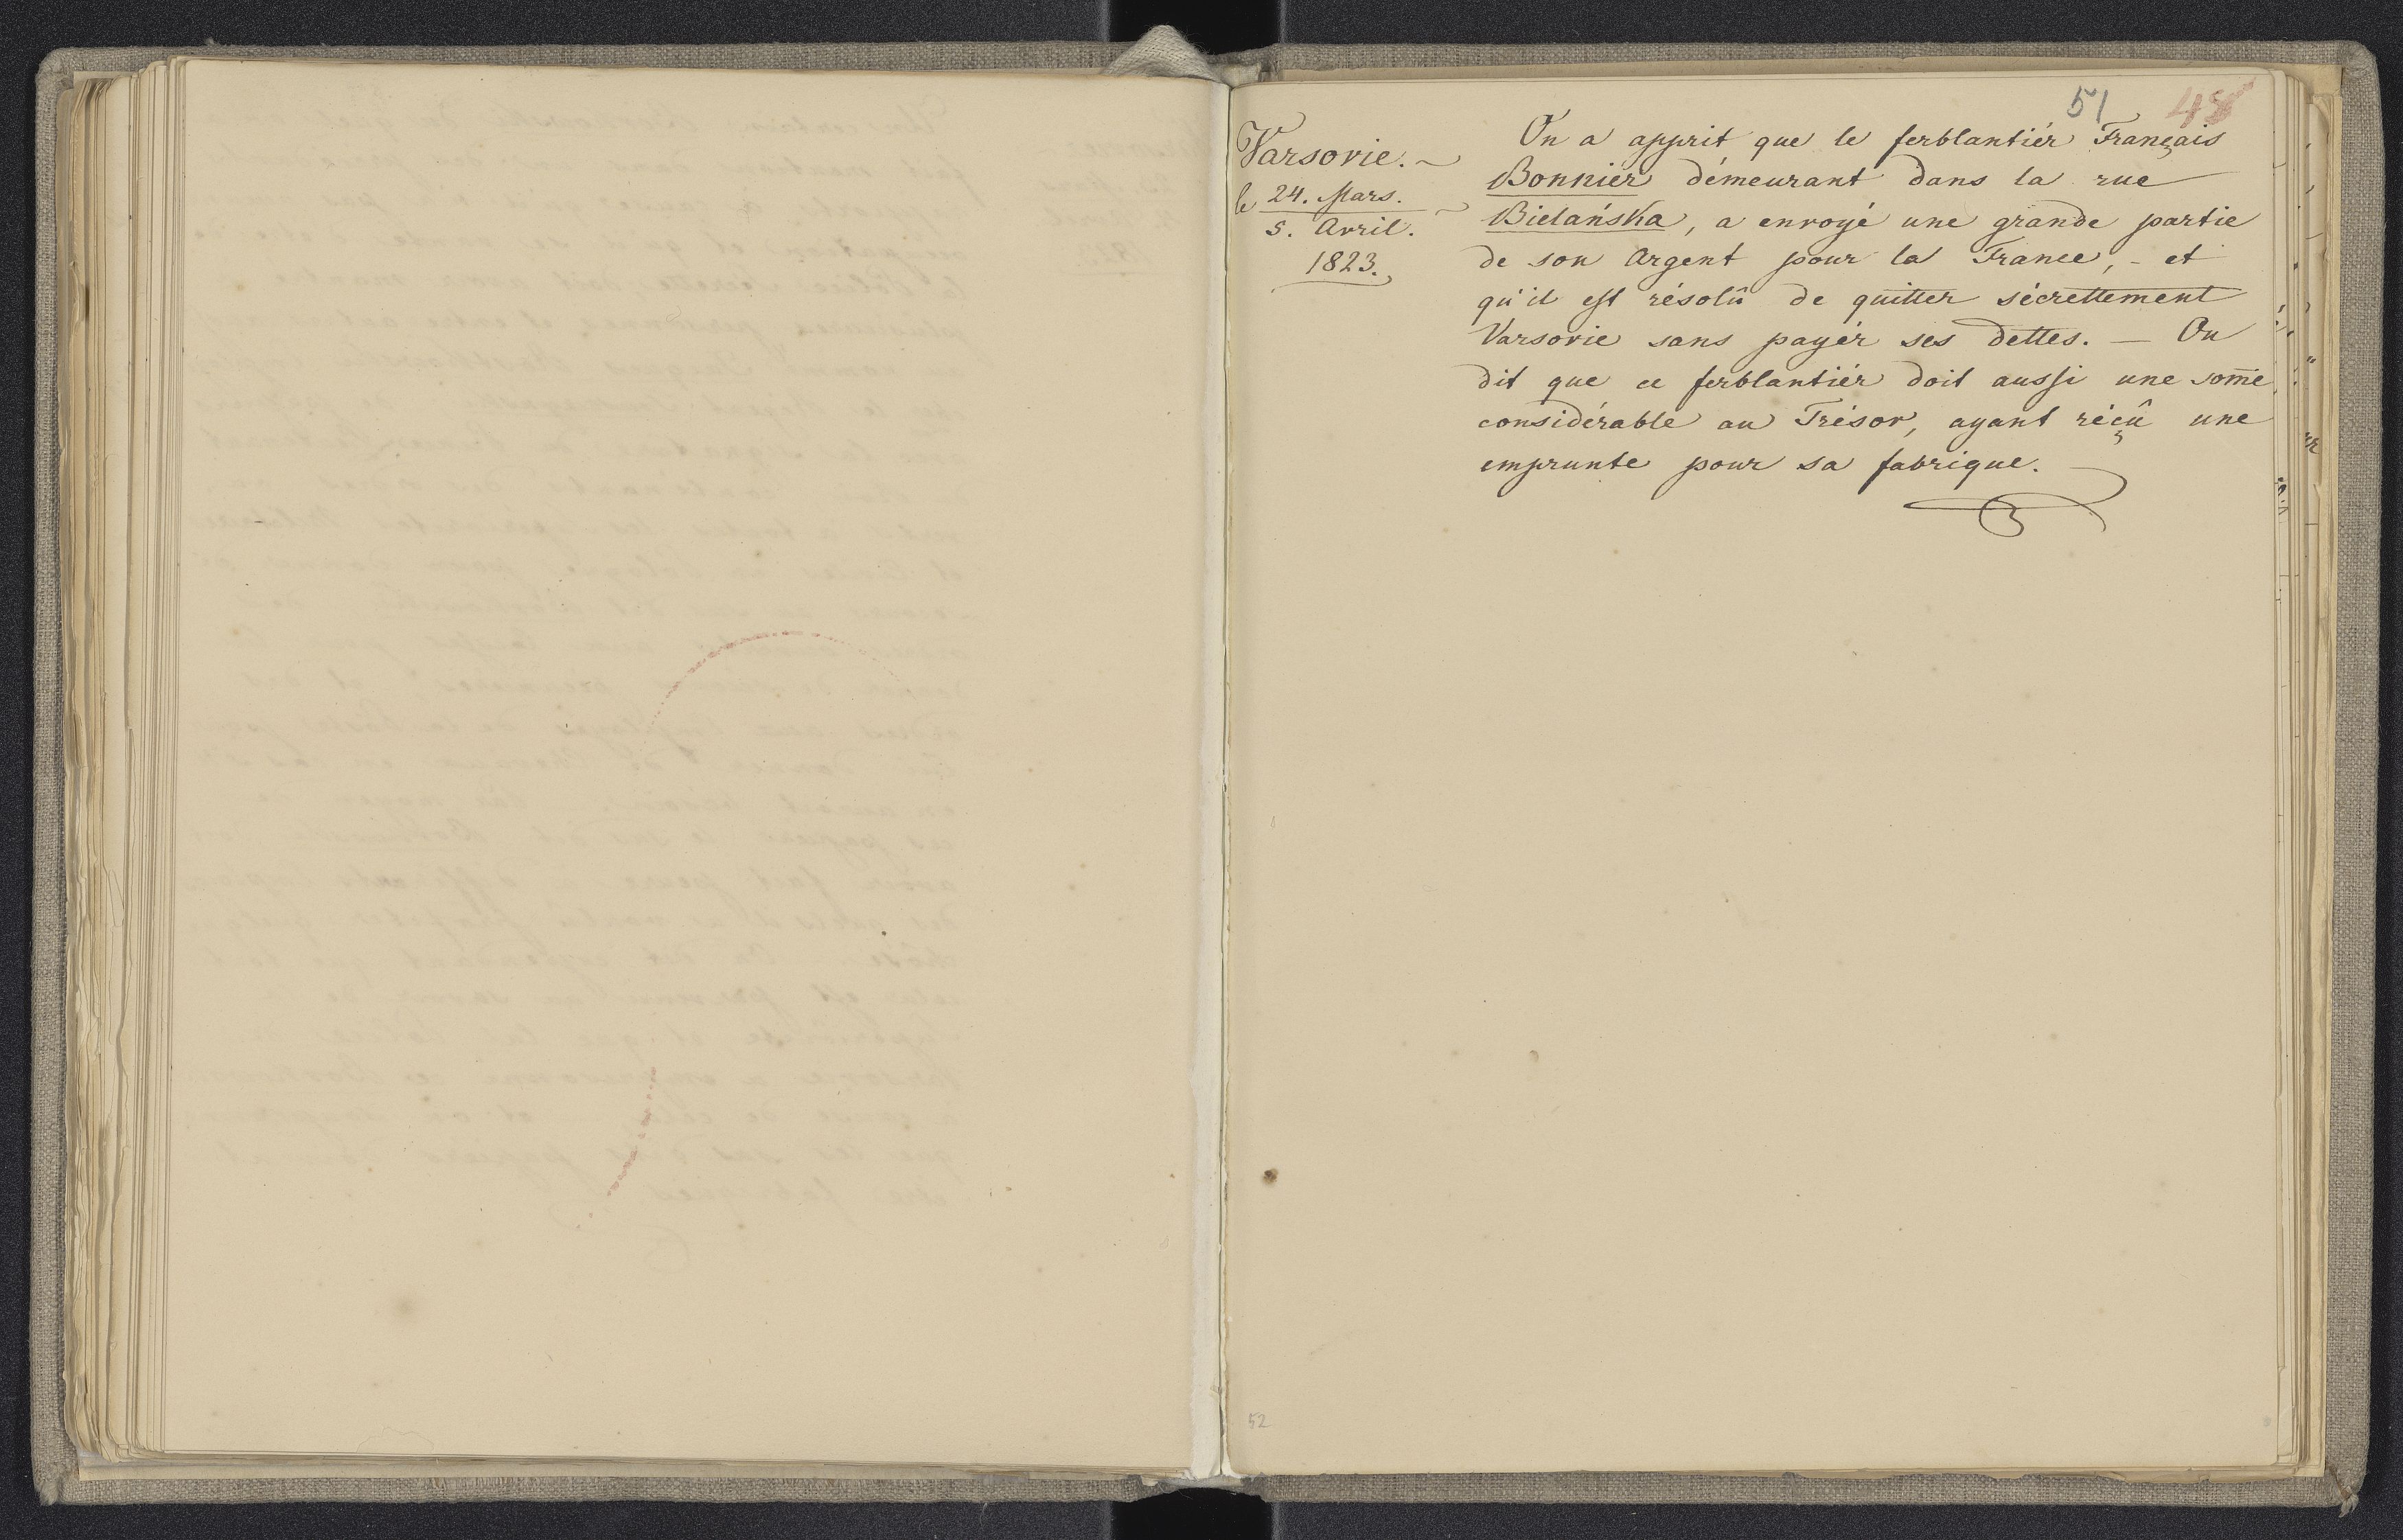 51 48
Varsovie.~
le 24. Mars.
5. Avril.
1823.
On a apprit que le ferblantiér Français
Bonniér démeurant dans la rue
Bielańska, a envoyé une grande partie
de son Argent pour la France, - et
qu'il est résolû de quitter sécrettement
Varsovie sans payér ses dettes. — On
dit que ce ferblantiér doit aussi une som̄e
considérable au Trésor, ayant réçû une
emprunte pour sa fabrique.
52